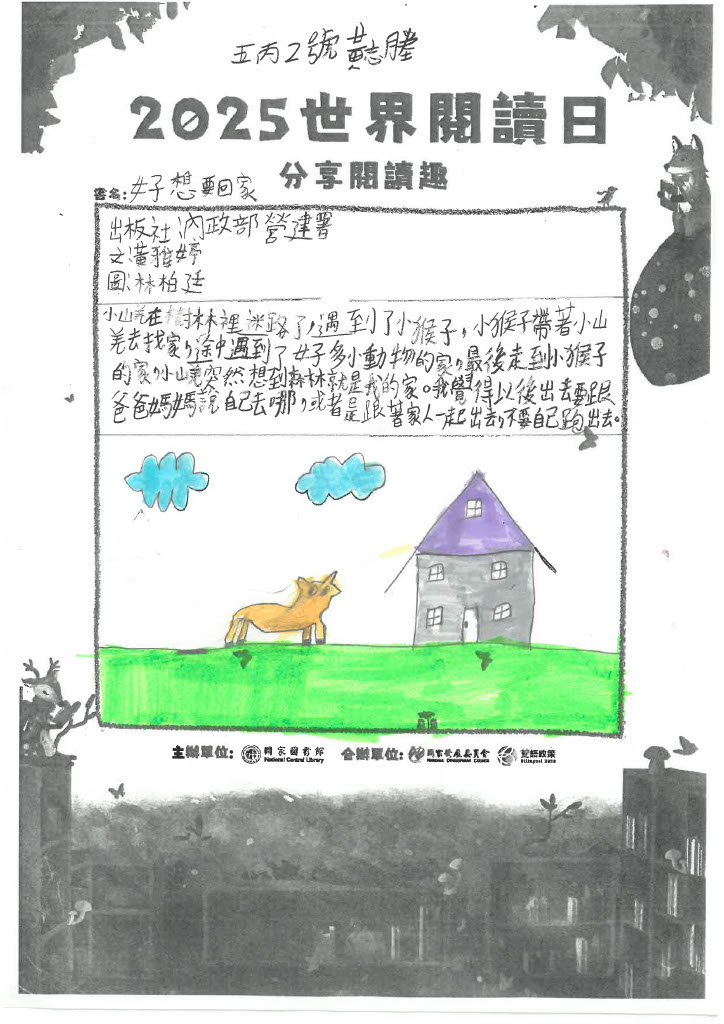 五丙2號 黃志塍
2025世界閱讀日
分享閱讀趣
書名:好想要回家
出版社 內政部營建署
文:黃雅婷
圖:林柏廷
小山羌在樹林裡迷路了,遇到了小猴子,小猴子帶著小山
羌去找家,途中遇到了好多小動物的家,最後走到小猴子
的家,小山羌突然想到森林就是我的家。我覺得以後出去要跟
爸爸媽媽說自己去哪,或者是跟著家人一起出去,不要自己跑出去。
主辦單位: 國家圖書館 合辦單位: 國家發展委員會 雙語政策
National Central Library NATIONAL DEVELOPMENT COUNCIL Bilingual 2030